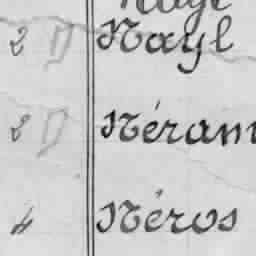 2 D Nayl
2 D Néram
4 Néros